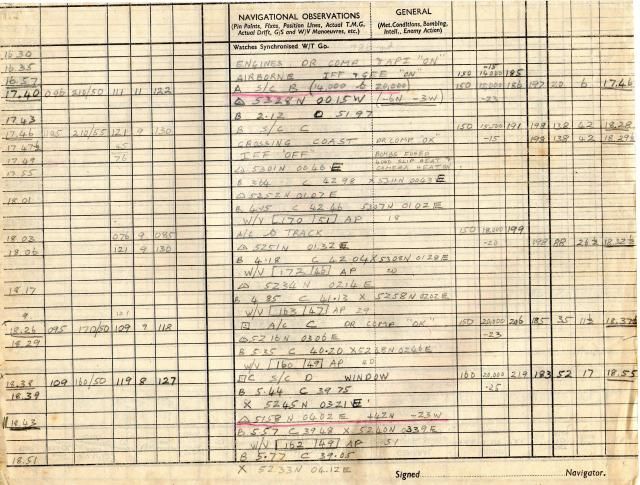 NAVIGATIONAL OBSERVATIONS GENERAL
(Pin Points, Fixes, Position Lines, Actual T.M.G. (Met. Conditions, Bombing,
Actual Drift, G/S and W/V Manoeuvres, etc.) Intell., Enemy Action)
Watches Synchronised W/T Go.
16.30
16.35 ENGINES DR COMP "ON" -15
16.57 AIRBORNE IFF + GEE "ON" 150 14000 185
17.40 096 210/50 111 11 122 A S/C B (14,000 20,000) 150 15,000 186 197 20 6 17.46
5328N 0015W (-6N -3W) -23
17.43 B 2.12 51.97
17.46 105 210/55 121 9 130 B S/C C 150 15,500 191 198 138 42 18.28
17.47½ 45 CROSSING COAST DR COMP "OK" -15 198 138 42 18.29½
17.49 76 IFF "OFF" BOMBS FUSED
17.55 5301N 0046E
B 364 C 42.98 X 5311N 0043E
5252N 0107E
18.01 B 4.05 C 42.46 5307N 0102E
W/V [170/51] AP 18
18.03 076 9 085 A/C TRACK 150 18,000 199
18.06 121 9 130 5251N 0132E -20 198 26½ 18.32½
B 4.18 C 42.04 X 5308N 0128E
W/V [172/46] AP 20
18.17 5234N 0214E
B 4.85 C 41.13 X 5258N 0202E
W/V [163/47] AP 29
18.26 095 170/50 109 9 118 A/C C DR COMP "OK" 150 20,000 206 185 35 11½ 18.37½
18.29 5216N 0306E -23
B 5.35 C 40.20 X 5248N 0246E
W/V [160/49] AP 20
18.38 109 160/50 119 8 127 C S/C D WINDOW 160 20,000 219 183 52 17 18.55
18.39 B 5.44 C 39.75 -25
X 5245N 0321E
18.43 5158N 0402E +42N -23W
B 5.57 C 39.48 X 5240N 0339E
W/V [162/49] AP 51
18.51 B 5.77 C 39.05
X 5233N 0412E
Signed Navigator.